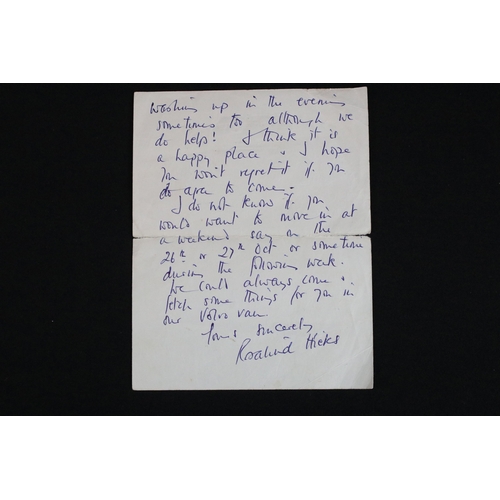 washing up in the evening
sometimes too although we
do help! I think it is
a happy place & I hope
you won't regret it if you
do agree to come.
I do not know if you
would want to move in at
a weekend say on the
26th or 27th Oct or sometime
during the following week.
We could always come &
fetch some things for you in
our Volvo van.
Yours sincerely
Rosalind Hicks